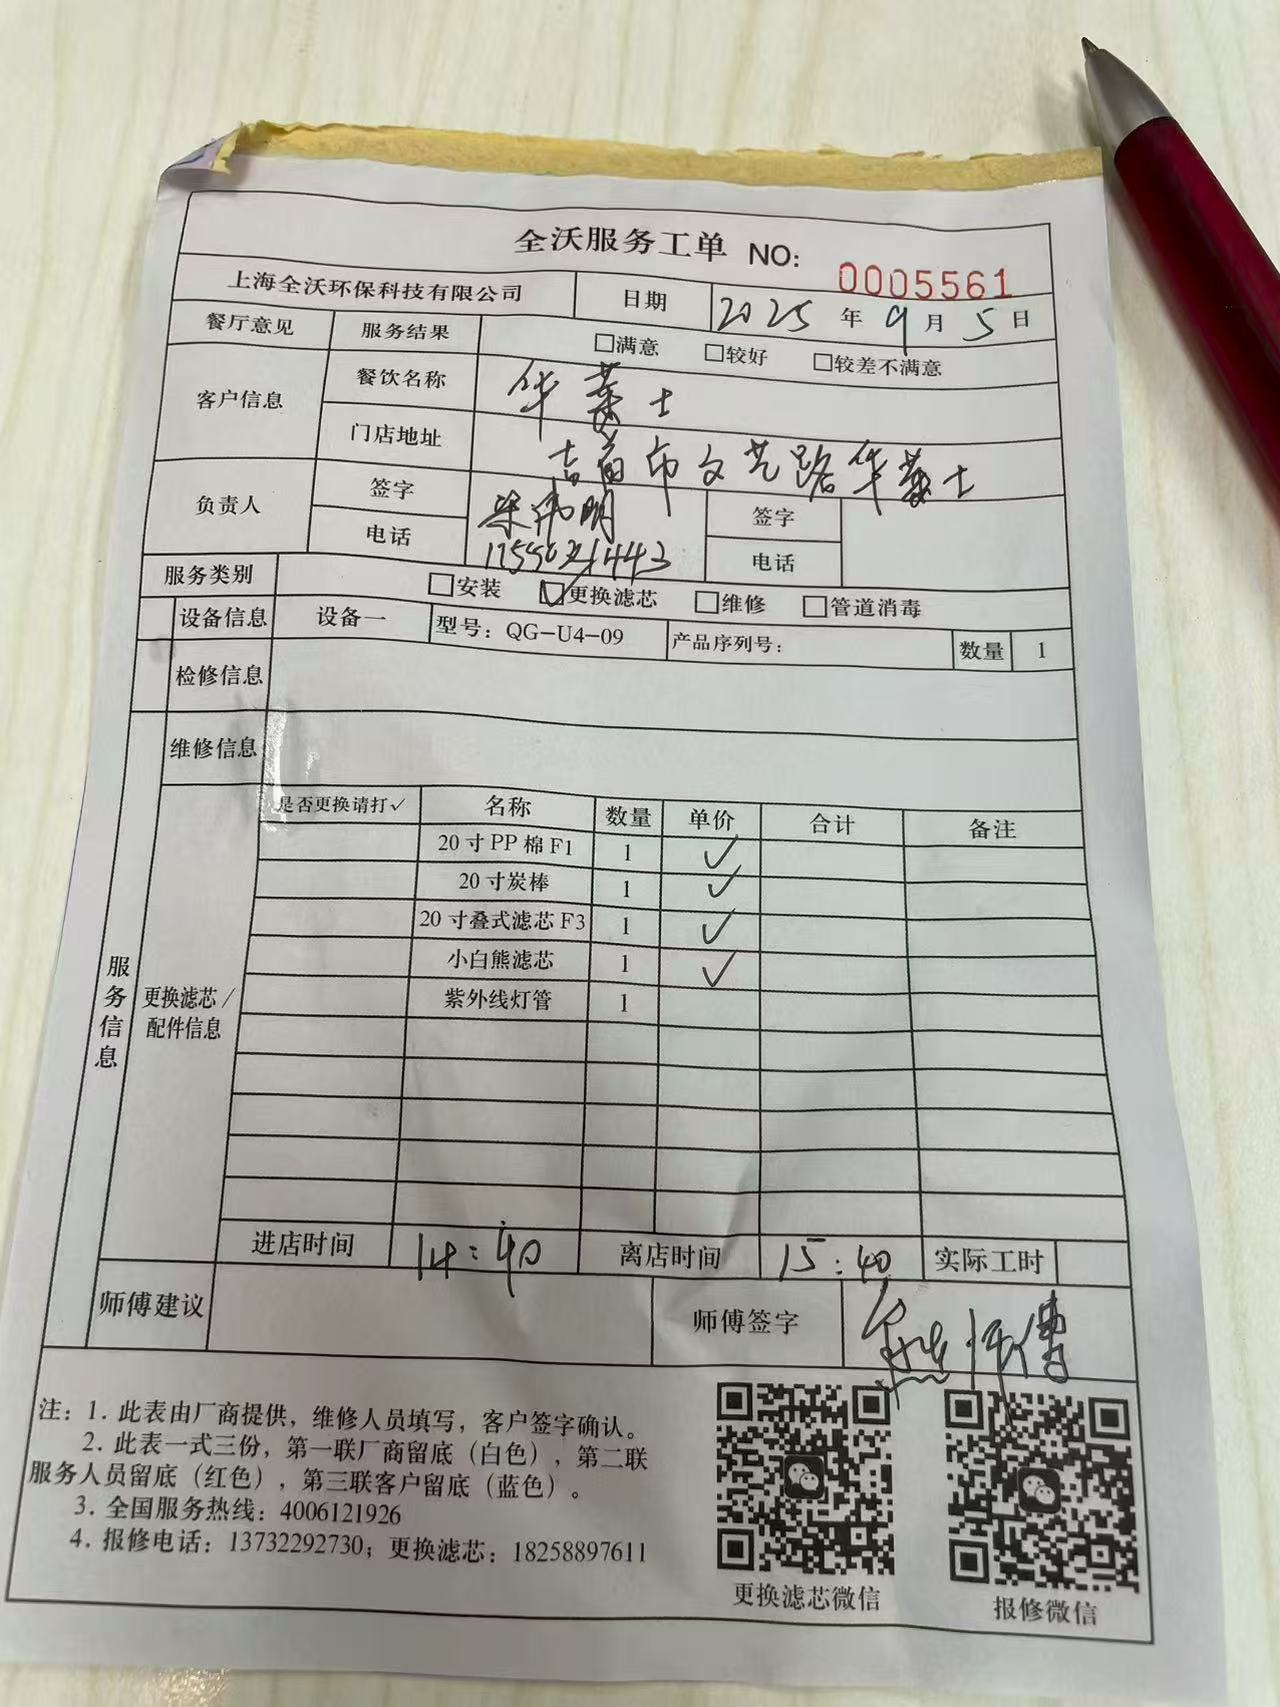 全沃服务工单 NO: 0005561
上海全沃环保科技有限公司 日期 2025 年 9 月 5 日
餐厅意见 服务结果 □满意 □较好 □较差不满意
客户信息 餐饮名称 华莱士
门店地址 吉首市文艺路华莱士
负责人 签字 签字
电话 电话
服务类别 □安装 ☑更换滤芯 □维修 □管道消毒
设备信息 设备一 型号：QG-U4-09 产品序列号： 数量 1
检修信息
维修信息
服务信息
更换滤芯/配件信息
是否更换请打✓ 名称 数量 单价 合计 备注
20寸PP棉F1 1 ✓
20寸炭棒 1 ✓
20寸叠式滤芯F3 1 ✓
小白熊滤芯 1 ✓
紫外线灯管 1
进店时间 14:40 离店时间 15:40 实际工时
师傅建议 师傅签字 熊师傅
注：1. 此表由厂商提供，维修人员填写，客户签字确认。
2. 此表一式三份，第一联厂商留底（白色），第二联
服务人员留底（红色），第三联客户留底（蓝色）。
3. 全国服务热线：4006121926
4. 报修电话：13732292730；更换滤芯：18258897611
更换滤芯微信 报修微信